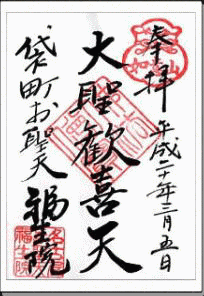 奉拝
平成二十年三月五日
大聖歓喜天
袋町お聖天
福生院
福生院